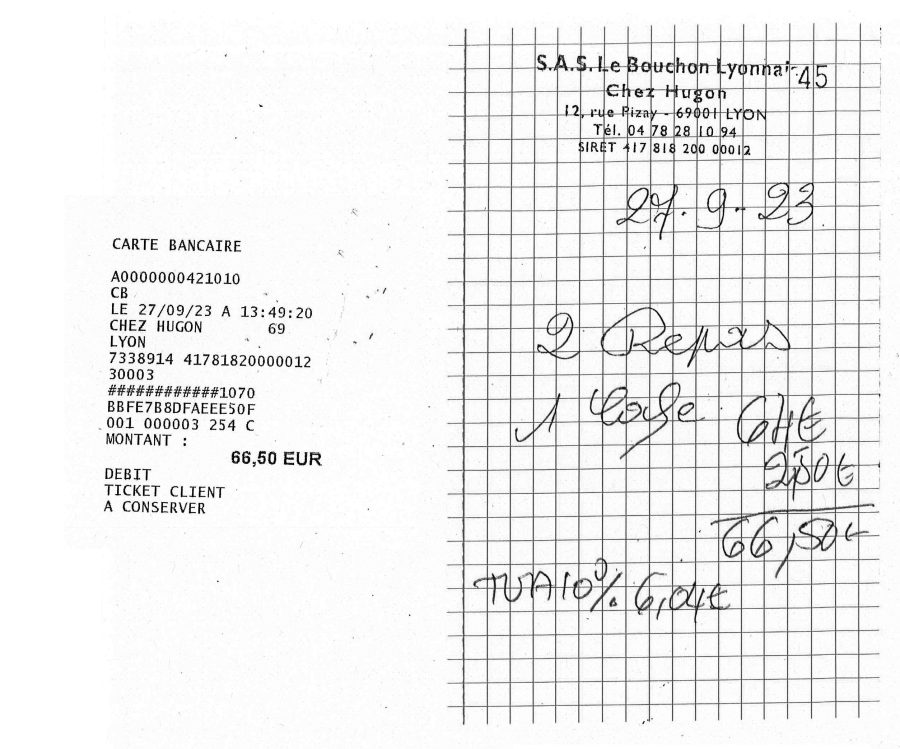 CARTE BANCAIRE
A0000000421010
CB
LE 27/09/23 A 13:49:20
CHEZ HUGON 69
LYON
7338914 41781820000012
30003
############1070
BBFE7B8DFAEEE50F
001 000003 254 C
MONTANT :
66,50 EUR
DEBIT
TICKET CLIENT
A CONSERVER
S.A.S. Le Bouchon Lyonnai 45
Chez Hugon
12, rue Pizay - 69001 LYON
Tél. 04 78 28 10 94
SIRET 417 818 200 00012
27. 9 - 23
2 Repas
1 Cafe 64€
2,50€
66,50€
TVA 10% 6,04€